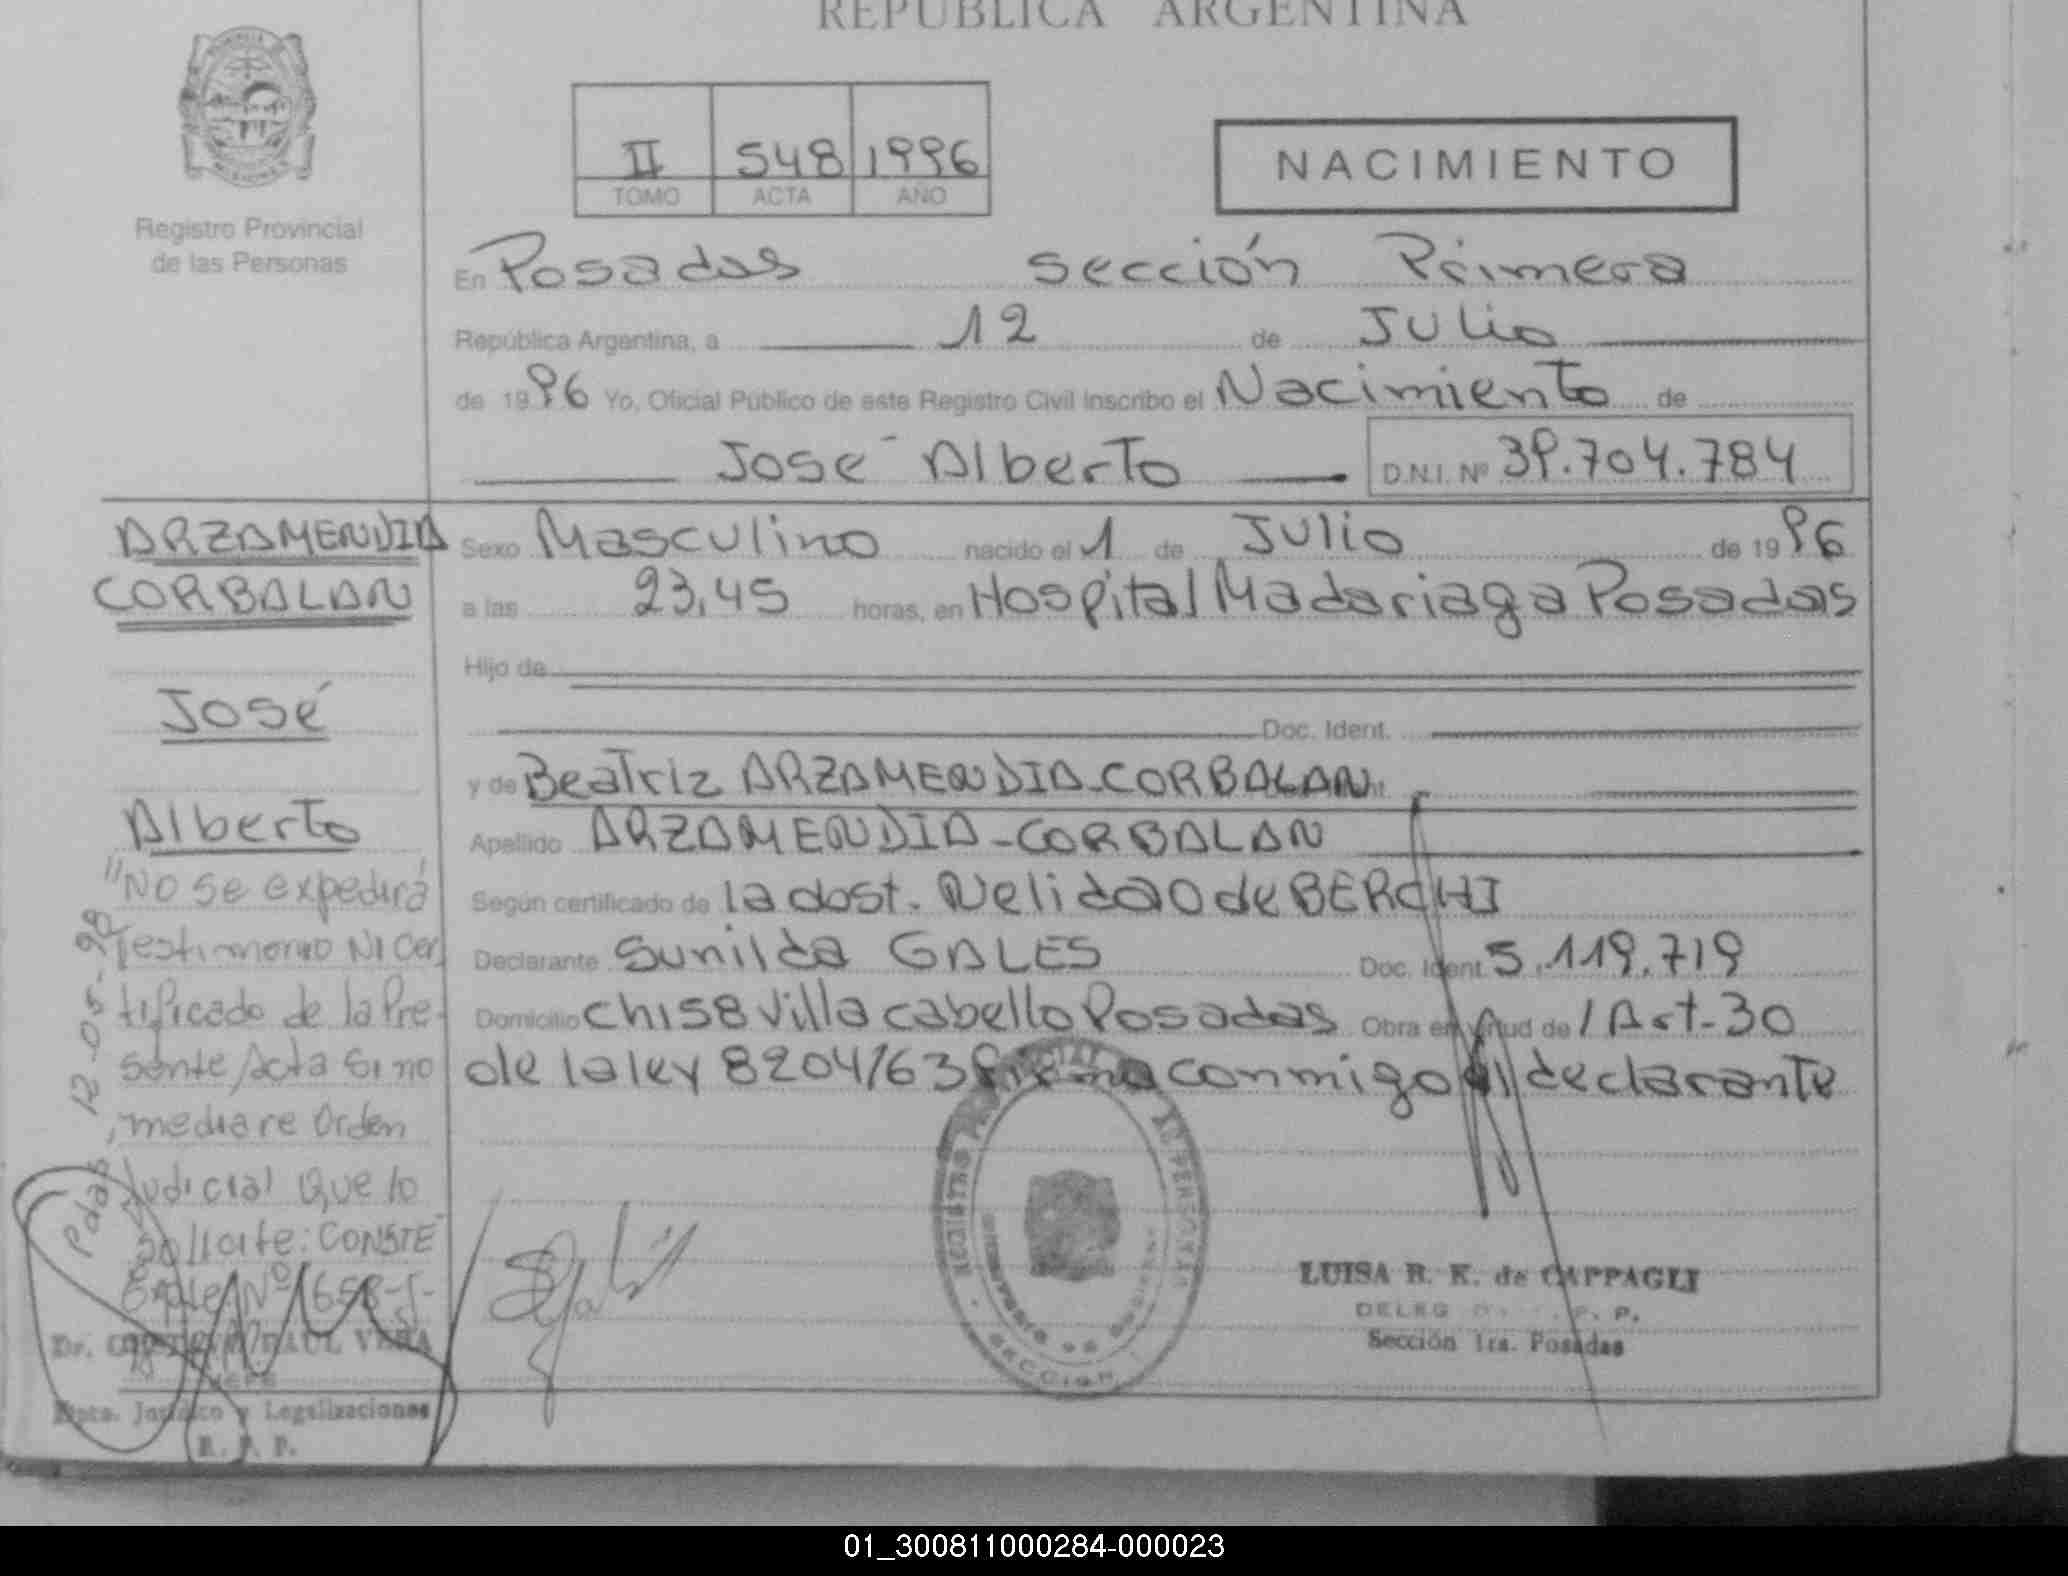 REPUBLICA ARGENTINA
Registro Provincial
de las Personas
II 548 1996
TOMO ACTA AÑO
NACIMIENTO
En Posadas sección Primera
República Argentina, a 12 de Julio
de 1996 Yo, Oficial Público de este Registro Civil inscribo el Nacimiento de
José Alberto D.N.I. Nº 39.704.784
ARZAMENDIA
CORBALAN
José
Alberto
"No se expedirá
Testimonio Ni Cer
tificado de la Pre-
sente Acta Si no
mediare Orden
Judicial Que lo
Solicite: CONSTE
Expte Nº 1658-J-
Pdas, 12-05-98
RAUL VERA
JEFE
Dpto. Jurídico y Legalizaciones
R. P. P.
Sexo Masculino nacido el 1 de Julio de 1996
a las 23,45 horas, en Hospital Madariaga Posadas
Hijo de
Doc. Ident.
y de Beatriz ARZAMENDIA-CORBALAN
Apellido ARZAMENDIA-CORBALAN
Según certificado de la obst. Nelida O de BERCHI
Declarante Sunilda GALES Doc. Ident 5.119.719
Domicilio ch158 Villa cabello Posadas Obra en virtud de / Art-30
de la ley 8204/63 firma conmigo el declarante
LUISA R. K. de CAPPAGLI
DELEG P. P.
Sección 1ra. Posadas
SECCION
01_300811000284-000023